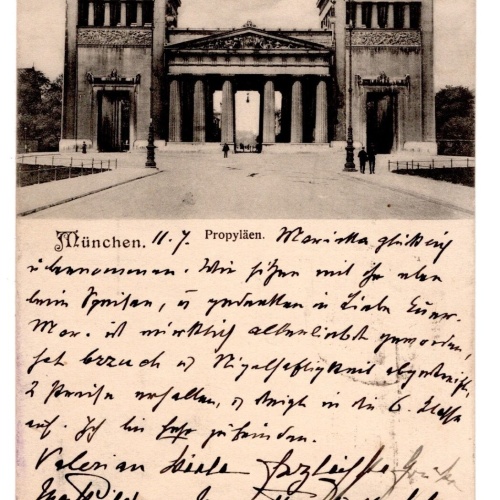 München. 11.7. Propyläen. Mariska glücklich
übernommen. Wir sitzen mit ihr eben
beim Speisen, u gedenken in Liebe Euer.
Mar. ist wirklich allerliebst geworden,
hat u abgestreift,
2 Preise erhalten, u steigt in die 6. Klasse
auf. Ich bin sehr zufrieden.
Valerian Herzlichste Grüße